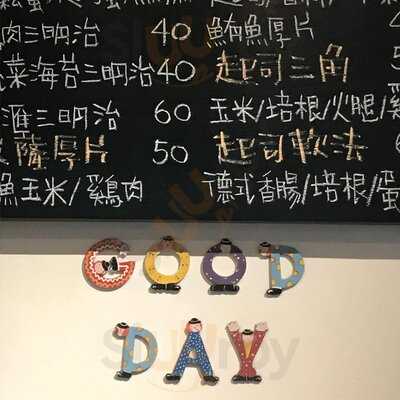 肉三明治 40 鮪魚厚片
菜海苔三明治 40 起司三角
匯三明治 60 玉米/培根/火腿/雞
薩厚片 50 起司軟法
魚玉米/雞肉 德式香腸/培根/蛋
GOOD
DAY